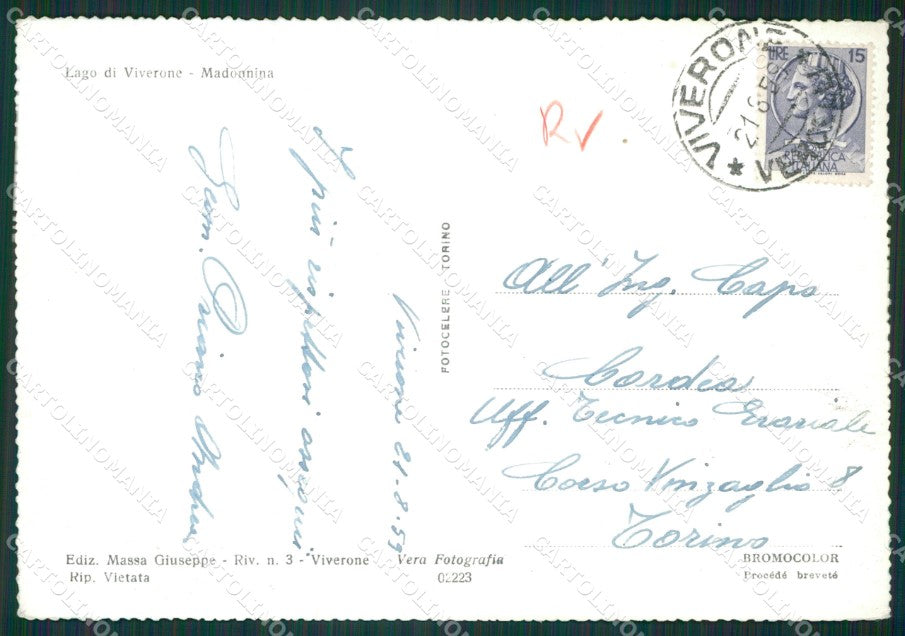 Lago di Viverone - Madonnina
R
VIVERONE
VER
21 8 59
LIRE 15
REPUBBLICA
ITALIANA
I più rispettosi ossequi
Geom.
Viverone 21-8-59
FOTOCELERE TORINO
All' Ing. Capo
Cordea
Uff. Tecnico Erariale
Corso Vinzaglio 8
Torino
Ediz. Massa Giuseppe - Riv. n. 3 - Viverone
Rip. Vietata
Vera Fotografia
02223
BROMOCOLOR
Procédé breveté
CARTOLINOMANIA